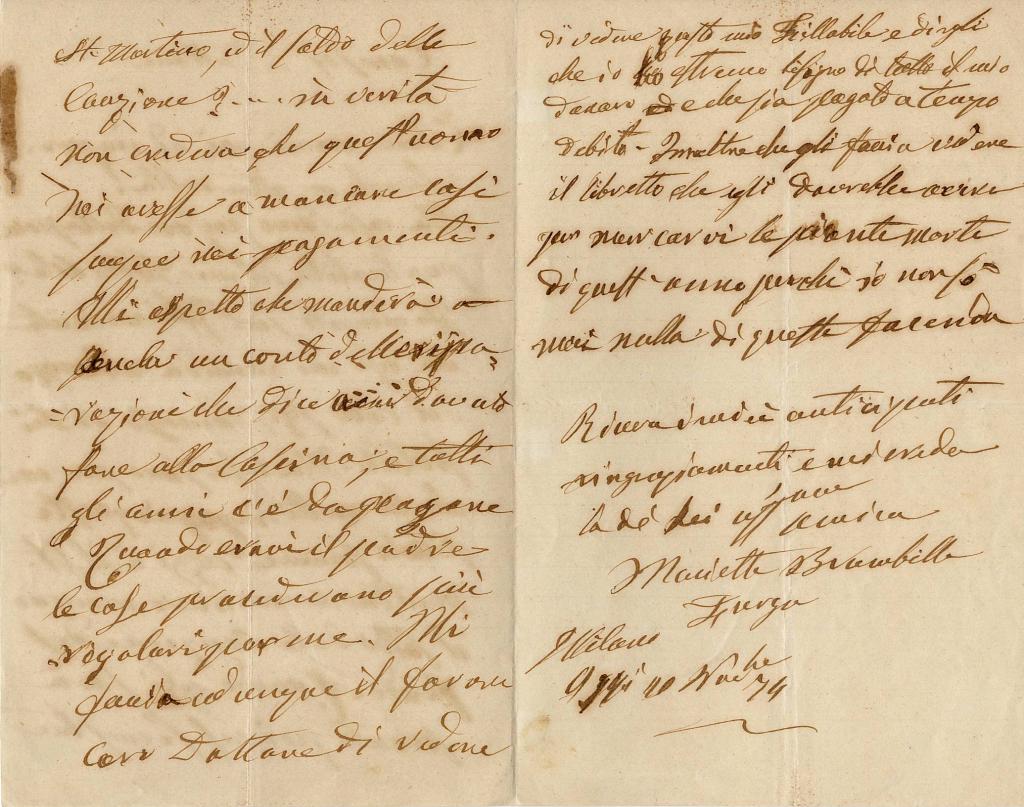 St Martino, ed il saldo delle
Cauzione?.... in verità
non credeva che quest'uomo
mi avesse a mancare così
sempre nei pagamenti.
Mi aspetto che manderà a
un conto delle ripa=
=razioni che dice aver dovuto
fare alla Cascina, e tutti
gli anni c'è da pagare
Quando eravi il padre
le cose procedevano più
regolari per me. Mi
faccia adunque il favore
caro Dottore di vedere
di vedere questo mio Fittabile e dirgli
che io ho estremo bisogno di tutto il mio
danaro e che sia pagato a tempo
debito - Inoltre che gli faccia vedere
il libretto che egli dovrebbe avere
per marcarvi le piante morte
di quest'anno perchè io non so
mai nulla di queste facende
Riceva i miei anticipati
ringraziamenti e mi creda
la di Lei aff
amica
Marietta Brambilla
Milano
Oggi 10 74